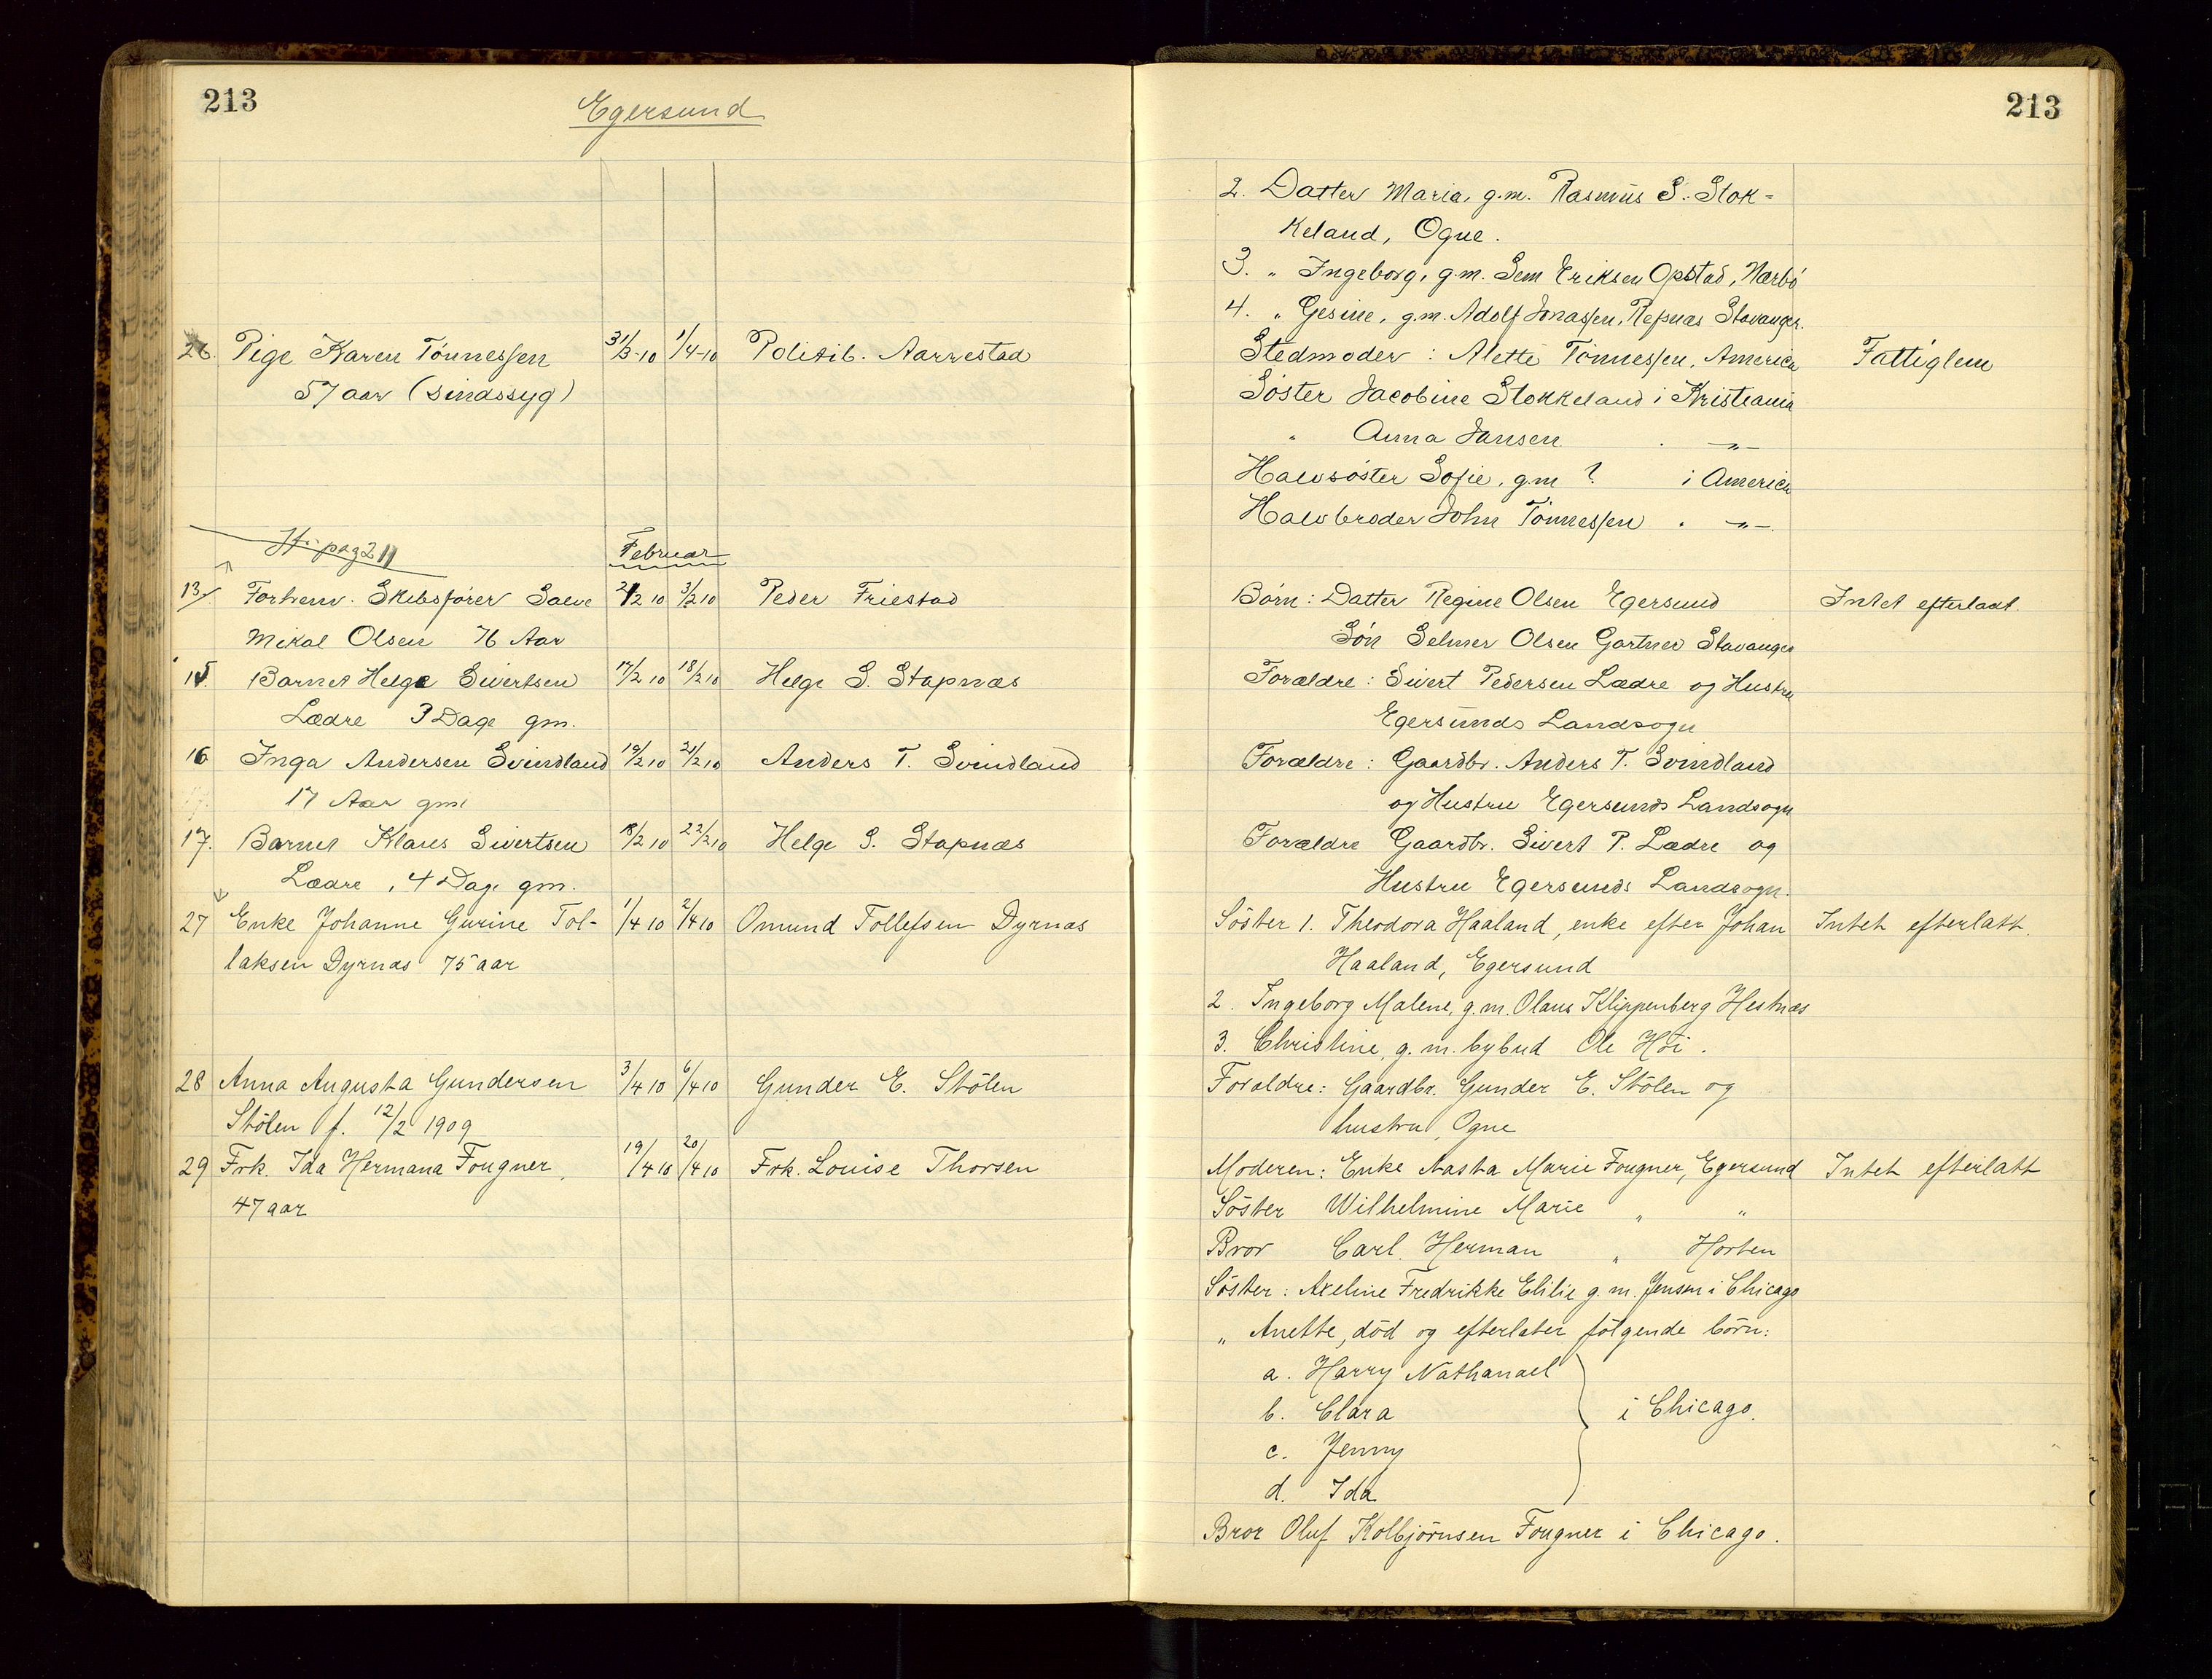 213
Egersund
26. Pige Karen Tönnessen 31/3-10 1/4-10 Politib. Aarrestad
57 aar (sindssyg)
pag 211
Februar
13 Forhenv. Skibsfører Salve 2/2 10 3/2 10 Peder Friestad
Mikal Olsen 76 Aar
15. Barnet Helge Sivertsen 17/2 10 18/2 10 Helge S. Stapnæs
Lædre 3 Dage gm.
16 Inga Andersen Svindland 19/2 10 21/2 10 Anders T. Svindland
17 Aar gml
17. Barnet Klaus Sivertsen 18/2 10 22/2 10 Helge S. Stapnæs
Lædre, 4 Dage gm.
27 Enke Johanne Gurine Tol- 1/4 10 2/4 10 Omund Tollefsen Dyrnæs
laksen Dyrnæs 75 aar
28 Anna Augusta Gundersen 3/4 10 6/4 10 Gunder E. Stölen
Stölen f. 12/2 1909
29 Frk. Ida Hermana Fougner, 19/4 10 20/4 10 Frk. Louise Thorsen
47 aar
213
2. Datter Maria, g.m. Rasmus S. Stok-
keland, Ogne.
3. " Ingeborg, g.m. Sem Eriksen Opstad, Nærbö
4. " Gesine, g.m. Adolf Jonassen, Stavanger.
Stedmoder: Alette Tönnessen, America Fattiglem
Söster Jacobine Stokkeland i Kristiania
" Anna Jansen . -"-
Halvsöster Sofie, g.m ? i America
Halvbroder John Tönnessen . -"-
Børn: Datter Regine Olsen Egersund Intet efterladt.
Sön Selmer Olsen Gartner Stavanger
Forældre: Sivert Pedersen Lædre og Hustru
Egersunds Landsogn
Forældre: Gaardbr. Anders T. Svindland
og Hustru Egersunds Landsogn
Forældre Gaardbr. Sivert P. Lædre og
Hustru Egersunds Landsogn.
Söster 1. Theodora Haaland, enke efter Johan Intet efterlatt.
Haaland, Egersund
2. Ingeborg Malene, g.m. Olaus Klippenberg Hestnæs
3. Christine, g.m. bybud Ole Höi.
Forældre: Gaardbr. Gunder E. Stölen og
hustru, Ogne
Moderen: Enke Aasta Marie Fougner, Egersund Intet efterlatt
Söster Wilhelmine Marie " "
Bror Carl Herman " Horten
Söster: Axeline Fredrikke Elilie g.m. Jensen i Chicago
" Anette, död og efterlater följende börn:
a. Harry Nathanael
b. Clara i Chicago.
c. Jenny
d. Ida
Bror Oluf Kolbjörnsen Fougner i Chicago.